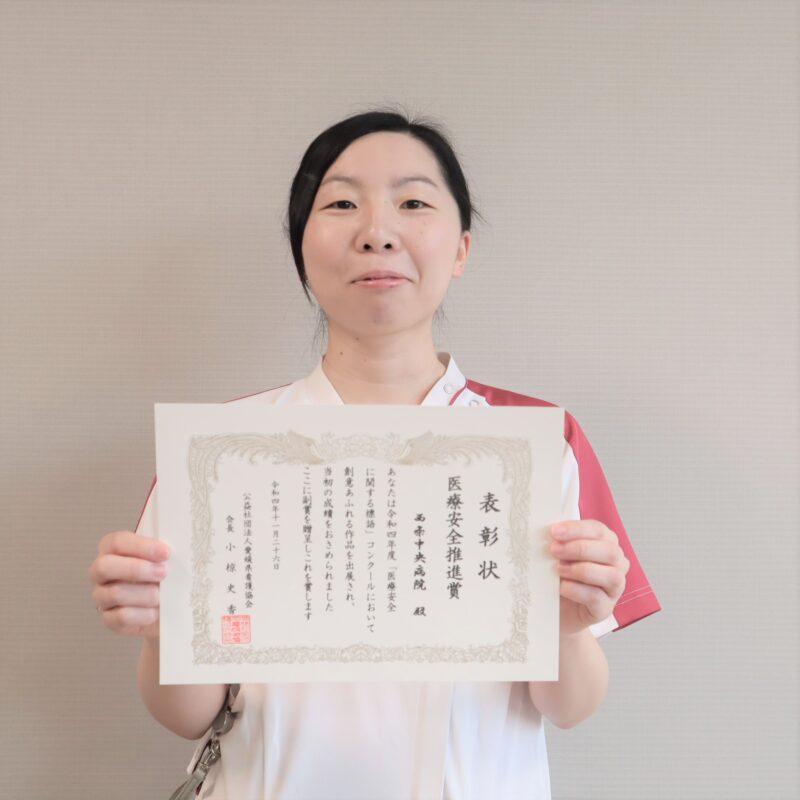 表彰状
医療安全推進賞
西条中央病院 殿
あなたは令和四年度「医療安全
に関する標語」コンクールにおいて
創意あふれる作品を出展され、
当初の成績をおさめられました
ここに副賞を贈呈しこれを賞します
令和四年十一月二十六日
公益社団法人愛媛県看護協会
会長 小椋史香